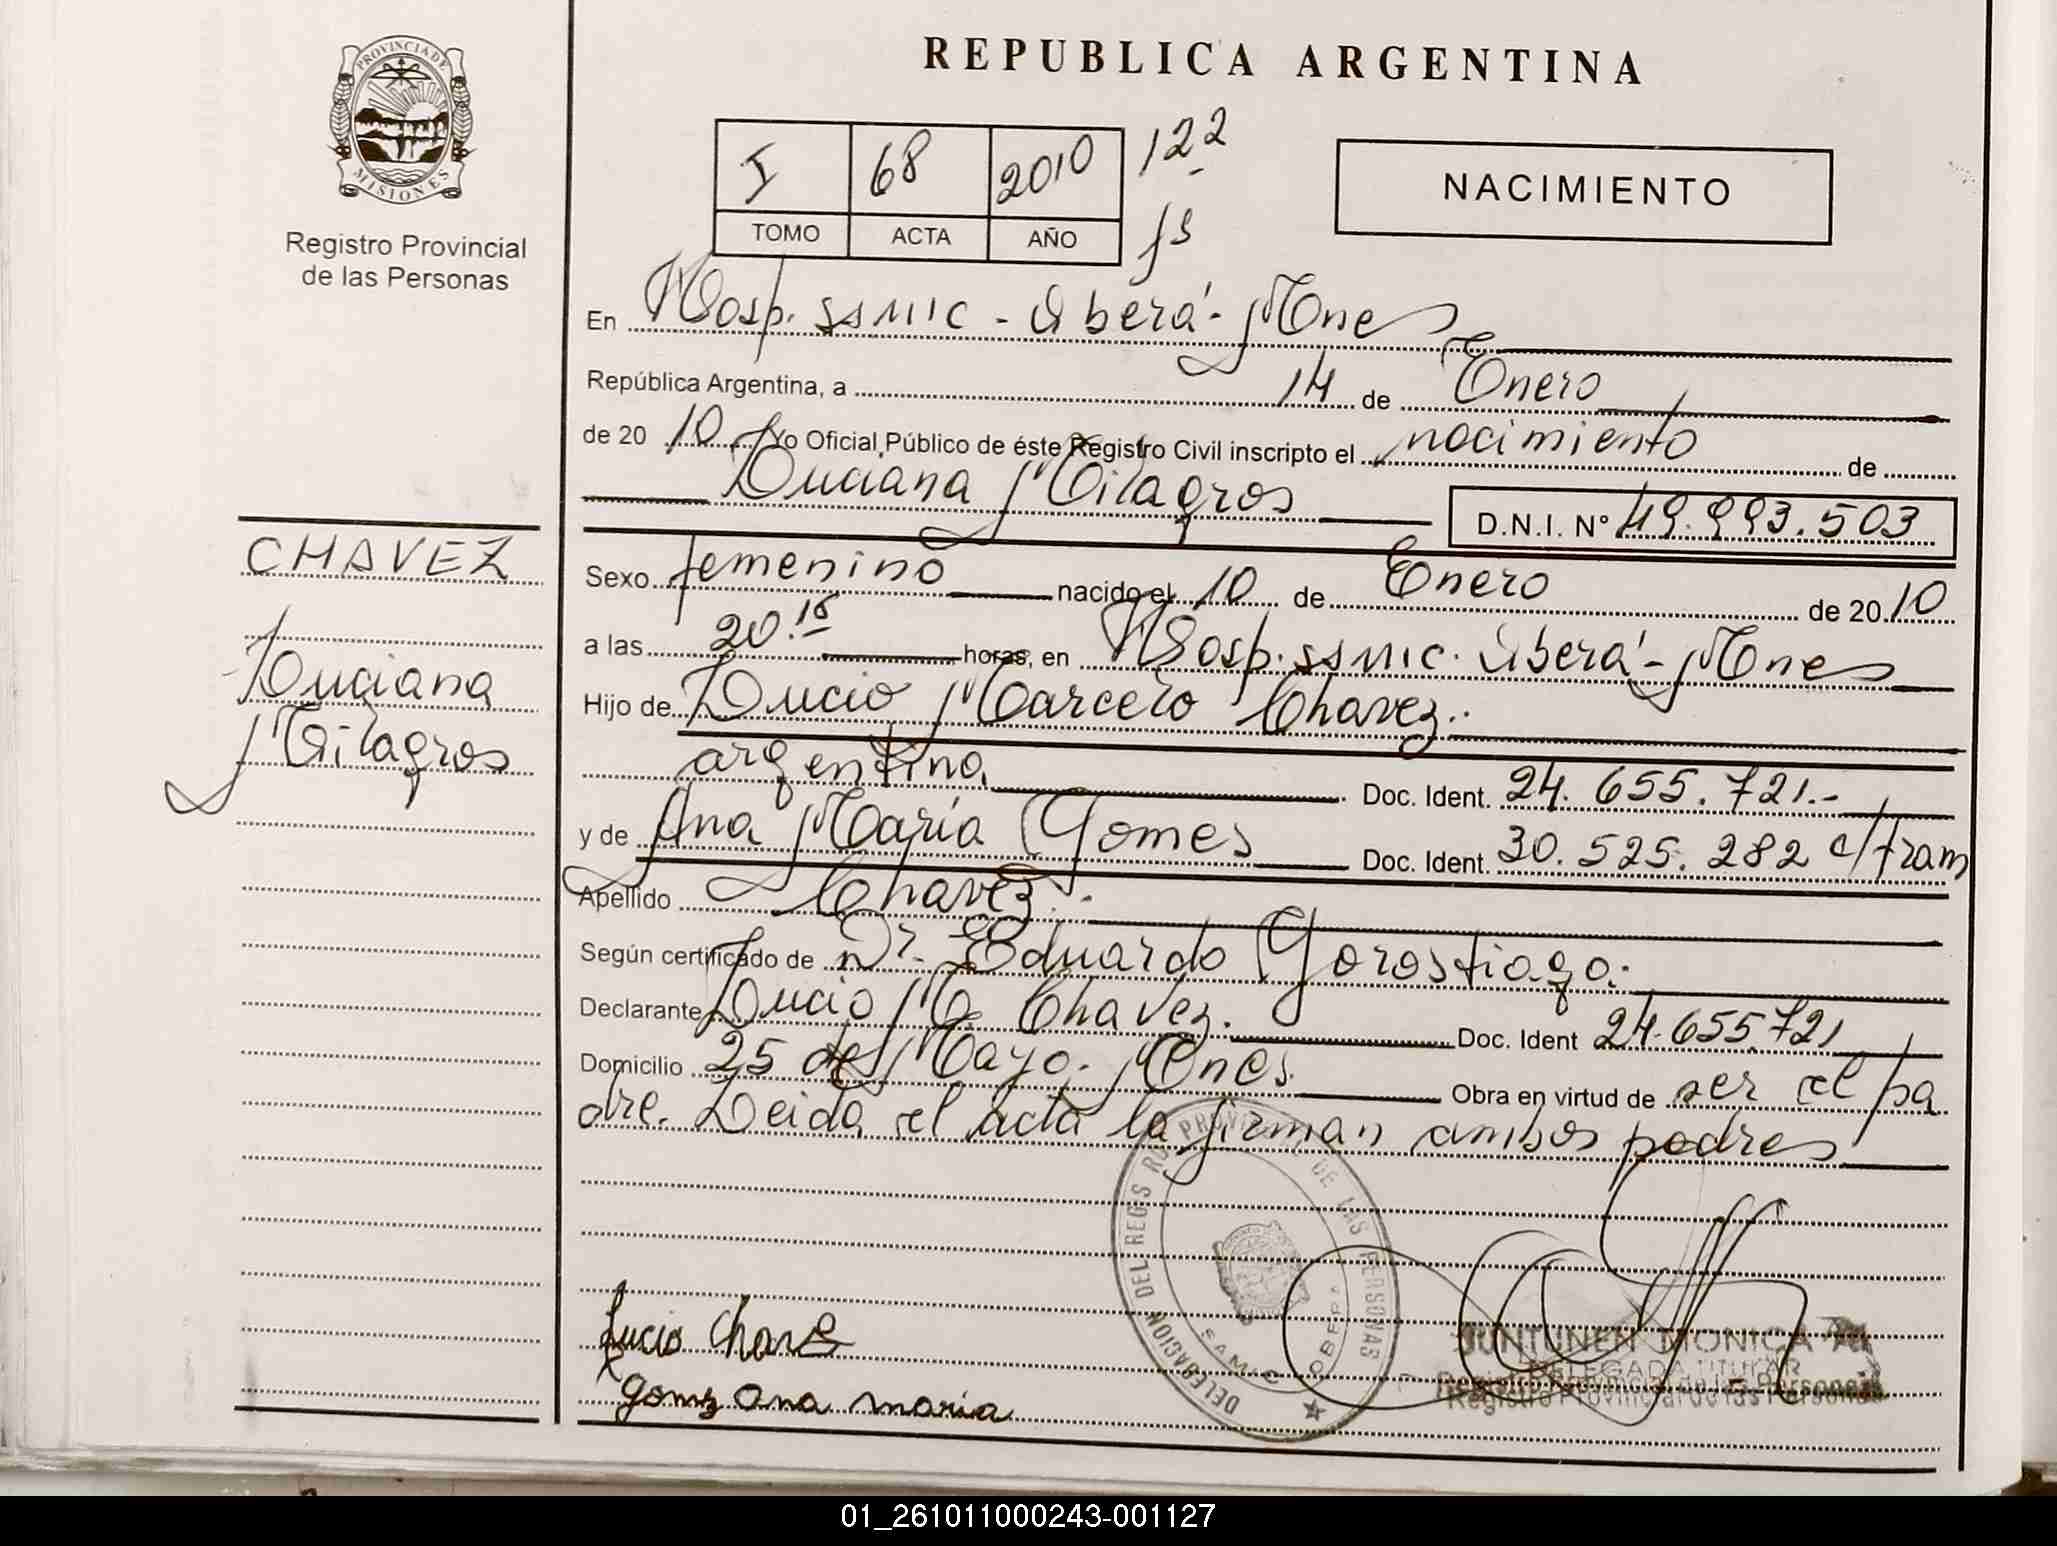 REPUBLICA ARGENTINA
PROVINCIA DE MISIONES
Registro Provincial
de las Personas
I 68 2010 122
TOMO ACTA AÑO fs
NACIMIENTO
En Hosp. SSMIC - Oberá - Mnes
República Argentina, a 14 de Enero
de 2010 Yo Oficial Público de éste Registro Civil inscripto el nacimiento de
Luciana Milagros D.N.I. Nº 49.993.503
CHAVEZ
Luciana
Milagros
Sexo femenino nacido el 10 de Enero de 2010
a las 20.15 horas, en Hosp. SSMIC. Oberá - Mnes
Hijo de Lucio Marcelo Chavez.
argentina Doc. Ident. 24.655.721.-
y de Ana María Gomes Doc. Ident. 30.525.282 c/tram
Apellido Chavez.-
Según certificado de Dr. Eduardo Gorostiaga.
Declarante Lucio M. Chavez. Doc. Ident 24.655.721
Domicilio 25 de Mayo. Mnes. Obra en virtud de ser el pa
dre. Leida el acta la firman ambos padres
DELEGACION DEL REGIS RO PROVINCIAL DE LAS PERSONAS
SAMIC OBERA
Lucio Chave
gomz ana maria
JUNTUNEN MONICA
DELEGADA TITULAR
Registro Provincial de las Personas
01_261011000243-001127